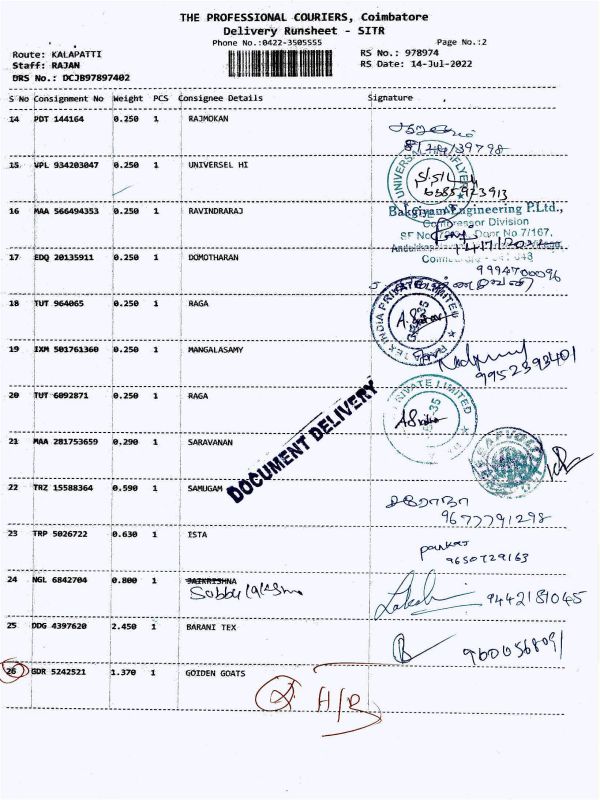 THE PROFESSIONAL COURIERS, Coimbatore
Delivery Runsheet - SITR
Phone No.:0422-3505555 Page No.:2
Route: KALAPATTI RS No.: 978974
Staff: RAJAN RS Date: 14-Jul-2022
DRS No.: DCJB97897402
S No Consignment No Weight PCS Consignee Details Signature
14 PDT 144164 0.250 1 RAJMOKAN
15 VPL 934203047 0.250 1 UNIVERSEL HI
16 MAA 566494353 0.250 1 RAVINDRARAJ
Bakgiyam Engineering P.Ltd.,
Compressor Division
Door No 7/167,
17 EDQ 20135911 0.250 1 DOMOTHARAN
9994700096
18 TUT 964065 0.250 1 RAGA
19 IXM 501761360 0.250 1 MANGALASAMY
9952393401
20 TUT 6092871 0.250 1 RAGA
PRIVATE LIMITED
DOCUMENT DELIVERY
21 MAA 281753659 0.290 1 SARAVANAN
22 TRZ 15588364 0.590 1 SAMUGAM
9677791298
23 TRP 5026722 0.630 1 ISTA
pankaj
9650729163
24 NGL 6842704 0.800 1 JAIKRISHNA
Lakshmi 9442181045
25 DDG 4397620 2.450 1 BARANI TEX
9600568091
26 GDR 5242521 1.370 1 GOIDEN GOATS
H/R